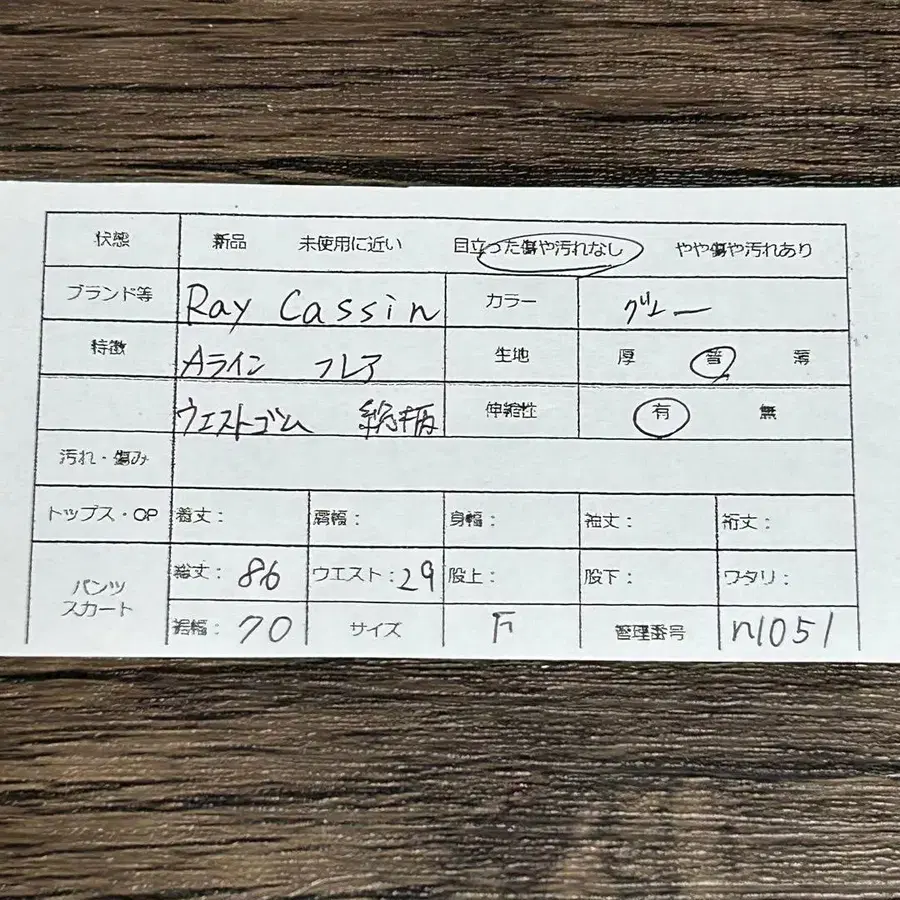 状態 新品 未使用に近い 目立った傷や汚れなし やや傷や汚れあり
ブランド等 Ray Cassin カラー グレー
特徴 Aライン フレア 生地 厚 普 薄
ウエストゴム 総柄 伸縮性 有 無
汚れ・傷み
トップス・OP 着丈: 肩幅: 身幅: 袖丈: 裄丈:
パンツ スカート 総丈: 86 ウエスト: 29 股上: 股下: ワタリ:
裾幅: 70 サイズ F 管理番号 n1051